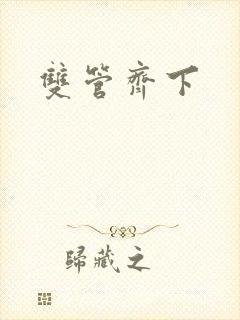 雙管齊下
歸藏之